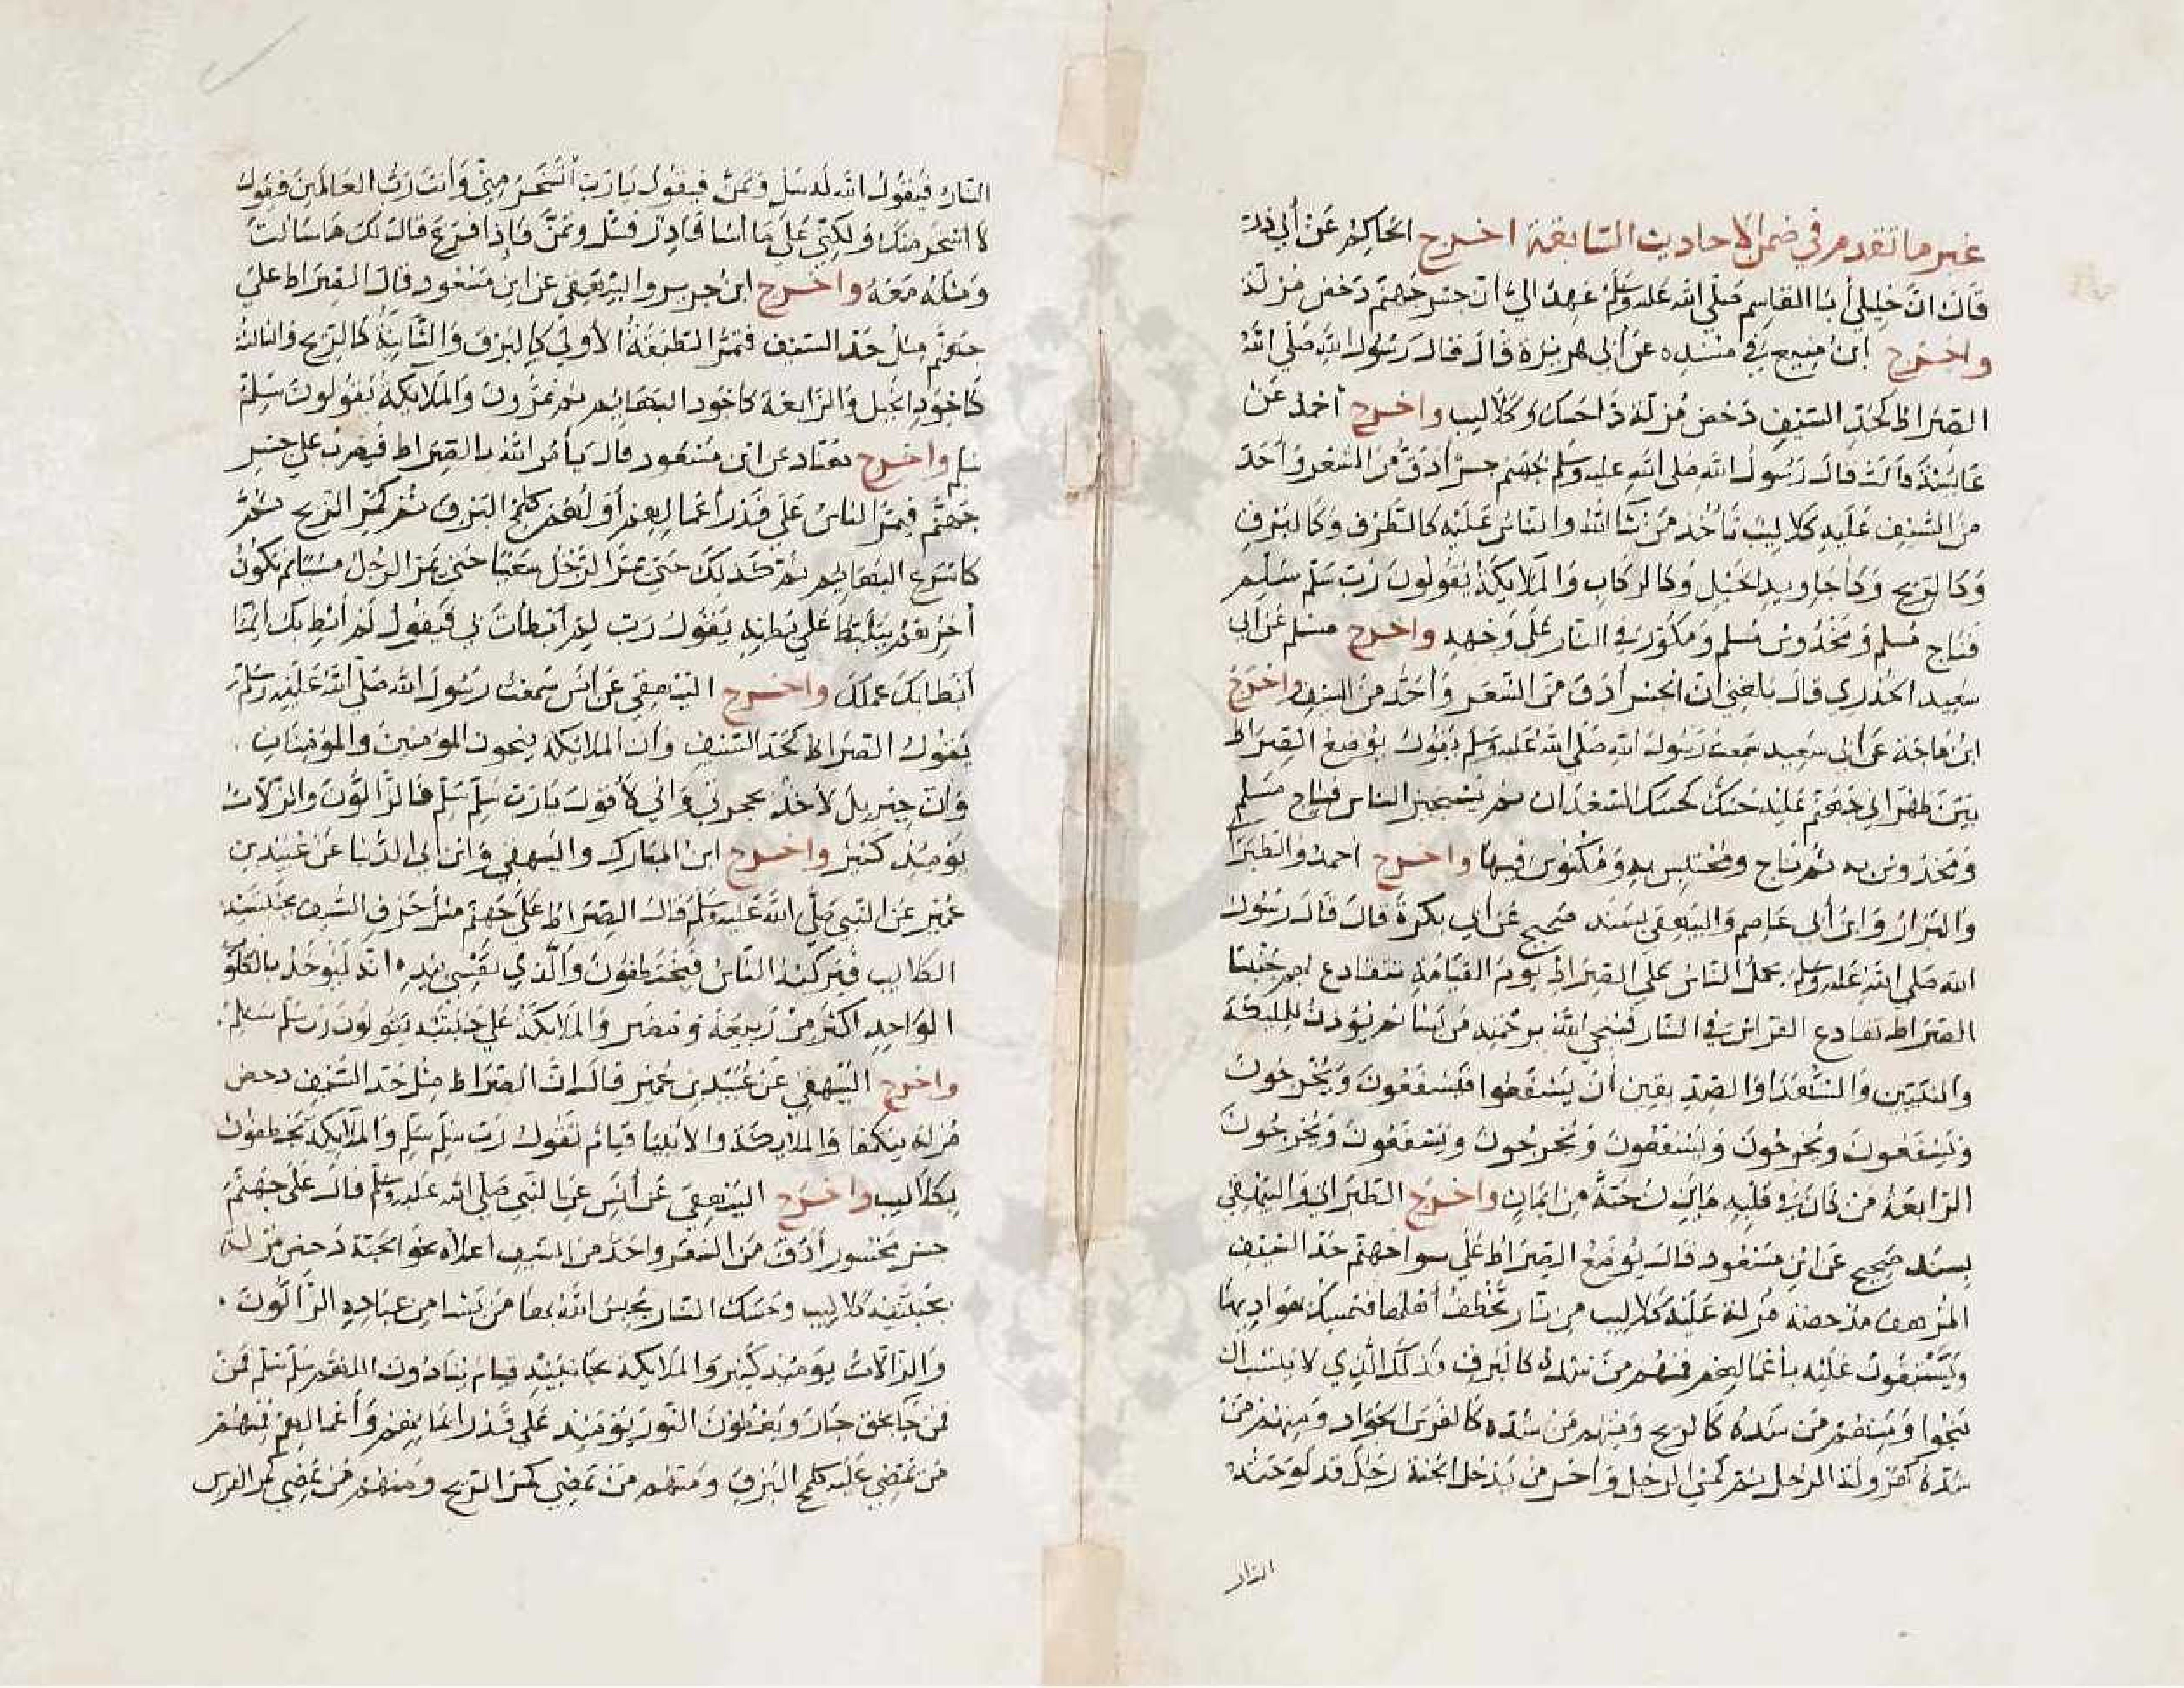 غير ما تقدم في ضمن الاحاديث السابقة اخرج الحاكم عن أبي ذر
قال ان خليلي أبا القاسم صلى الله عليه وسلم عهد الي ان جسر جهنم دحض مزلة
واخرج ابن منيع في مسنده عن أبي هريرة قال قال رسول الله صلى الله
الصراط كحد السيف دحض مزلة ذا حسك وكلاليب واخرج أحمد عن
عايشة قالت قال رسول الله صلى الله عليه وسلم لجهنم جسر أدق من الشعر وأحد
من السيف عليه كلاليب تأخذ من شا الله والناس عليه كالطرف وكالبرق
وكالريح وكاجاويد الخيل وكالركاب والملايكة يقولون رب سلم سلم
فناج مسلم ومخدوش مسلم ومكور في النار على وجهه واخرج مسلم عن ابي
سعيد الخدري قال بلغني ان الجسر أدق من الشعر وأحد من السيف واخرج
ابن ماجة عن أبي سعيد سمعت رسول الله صلى الله عليه وسلم يقول يوضع الصراط
بين ظهراني جهنم عليه حسك كحسك السعدان ثم يستجيز الناس فناج مسلم
ومخدوش به ثم ناج ومحتبس به ومنكوس فيها واخرج احمد والطبرا
والبزار وابن أبي عاصم والبيهقي بسند صحيح عن أبي بكرة قال قال رسول
الله صلى الله عليه وسلم يحمل الناس على الصراط يوم القيامة فتقادع بهم جنبتا
الصراط تقادع الفراش في النار فينجي الله برحمته من يشا ثم يوذن للملايكة
والنبيين والشهدا والصديقين أن يشفعوا فيشفعون ويخرجون
ويشفعون ويخرجون ويشفعون ويخرجون ويشفعون ويخرجون
الرابعة من كان في قلبه ما يزن حبة من ايمان واخرج الطبراني والبيهقي
بسند صحيح عن ابن مسعود قال يوضع الصراط على سوا جهنم حد السيف
المرهف مدحضة مزلة عليه كلاليب من نار تخطف أهلها فتمسك بهواديها
ويستبقون عليه بأعمالهم فمنهم من شده كالبرق وذلك الذي لا ينشب ان
ينجوا ومنهم من شده كالريح ومنهم من شده كالفرس الجواد ومنهم من
شده كهرولة الرجل ثم كمشي الرجل واخر من يدخل الجنة رجل قد لوحته
النار
النار فيقول الله له سل وتمن فيقول يا رب أتسخر مني وأنت رب العالمين فيقول
لا اسخر منك ولكني على ما اشا قادر فسل وتمن فإذا فرغ قال لك ما سالت
ومثله معه واخرج ابن جرير والبيهقي عن ابن مسعود قال الصراط على
جهنم مثل حد السيف فتمر الطبقة الأولى كالبرق والثانية كالريح والثالثة
كاجود الخيل والرابعة كاجود البهايم ثم يمرون والملايكة يقولون سلم
سلم واخرج هناد عن ابن مسعود قال يأمر الله بالصراط فيضرب على جسر
جهنم فيمر الناس على قدر أعمالهم أولهم كلمح البرق ثم كمر الريح ثم
كاسرع البهايم ثم كذلك حتى يمر الرجل سعيا حتى يمر الرجل مشيا ثم يكون
أخرهم يتلبط على بطنه يقول رب لم أبطأت بي فيقول لم أبط بك انما
أبطا بك عملك واخرج البيهقي عن انس سمعت رسول الله صلى الله عليه وسلم
يقول الصراط كحد السيف وان الملايكة ينجون المؤمنين والمؤمنات .
وان جبريل لاخذ بحجزتي واني لأقول يا رب سلم سلم فالزالون والزلات
يوميذ كثير واخرج ابن المبارك والبيهقي وابن ابي الدنيا عن عبيد بن
عمير عن النبي صلى الله عليه وسلم قال الصراط على جهنم مثل حرف السيف بجنبتيه
الكلاليب فيركبه الناس فيختطفون والذي نفسي بيده انه ليوخذ بالكلوب
الواحد اكثر من ربيعة ومضر والملايكة على جنبتيه يقولون رب سلم سلم.
واخرج البيهقي عن عبيد بن عمير قال ان الصراط مثل حد السيف دحض
مزلة يتكفا والملايكة والانبيا قيام تقول رب سلم سلم والملايكة تخطفون
بكلاليب واخرج البيهقي عن أنس عن النبي صلى الله عليه وسلم قال على جهنم
جسر مجسور أدق من الشعر واحد من السيف اعلاه نحو الجنة دحض مزلة
بجنبتيه كلاليب وحسك النار يحبس الله بها من يشا من عباده الزالون .
والزالات يوميذ كثير والملايكة بجانبيه قيام ينادون اللهم سلم سلم فمن
فمن جا بحق جاز ويعطون النور يوميذ على قدر ايمانهم وأعمالهم فمنهم
من يمضي عليه كلمح البرق ومنهم من يمضي كمر الريح ومنهم من يمضي كمر الفرس